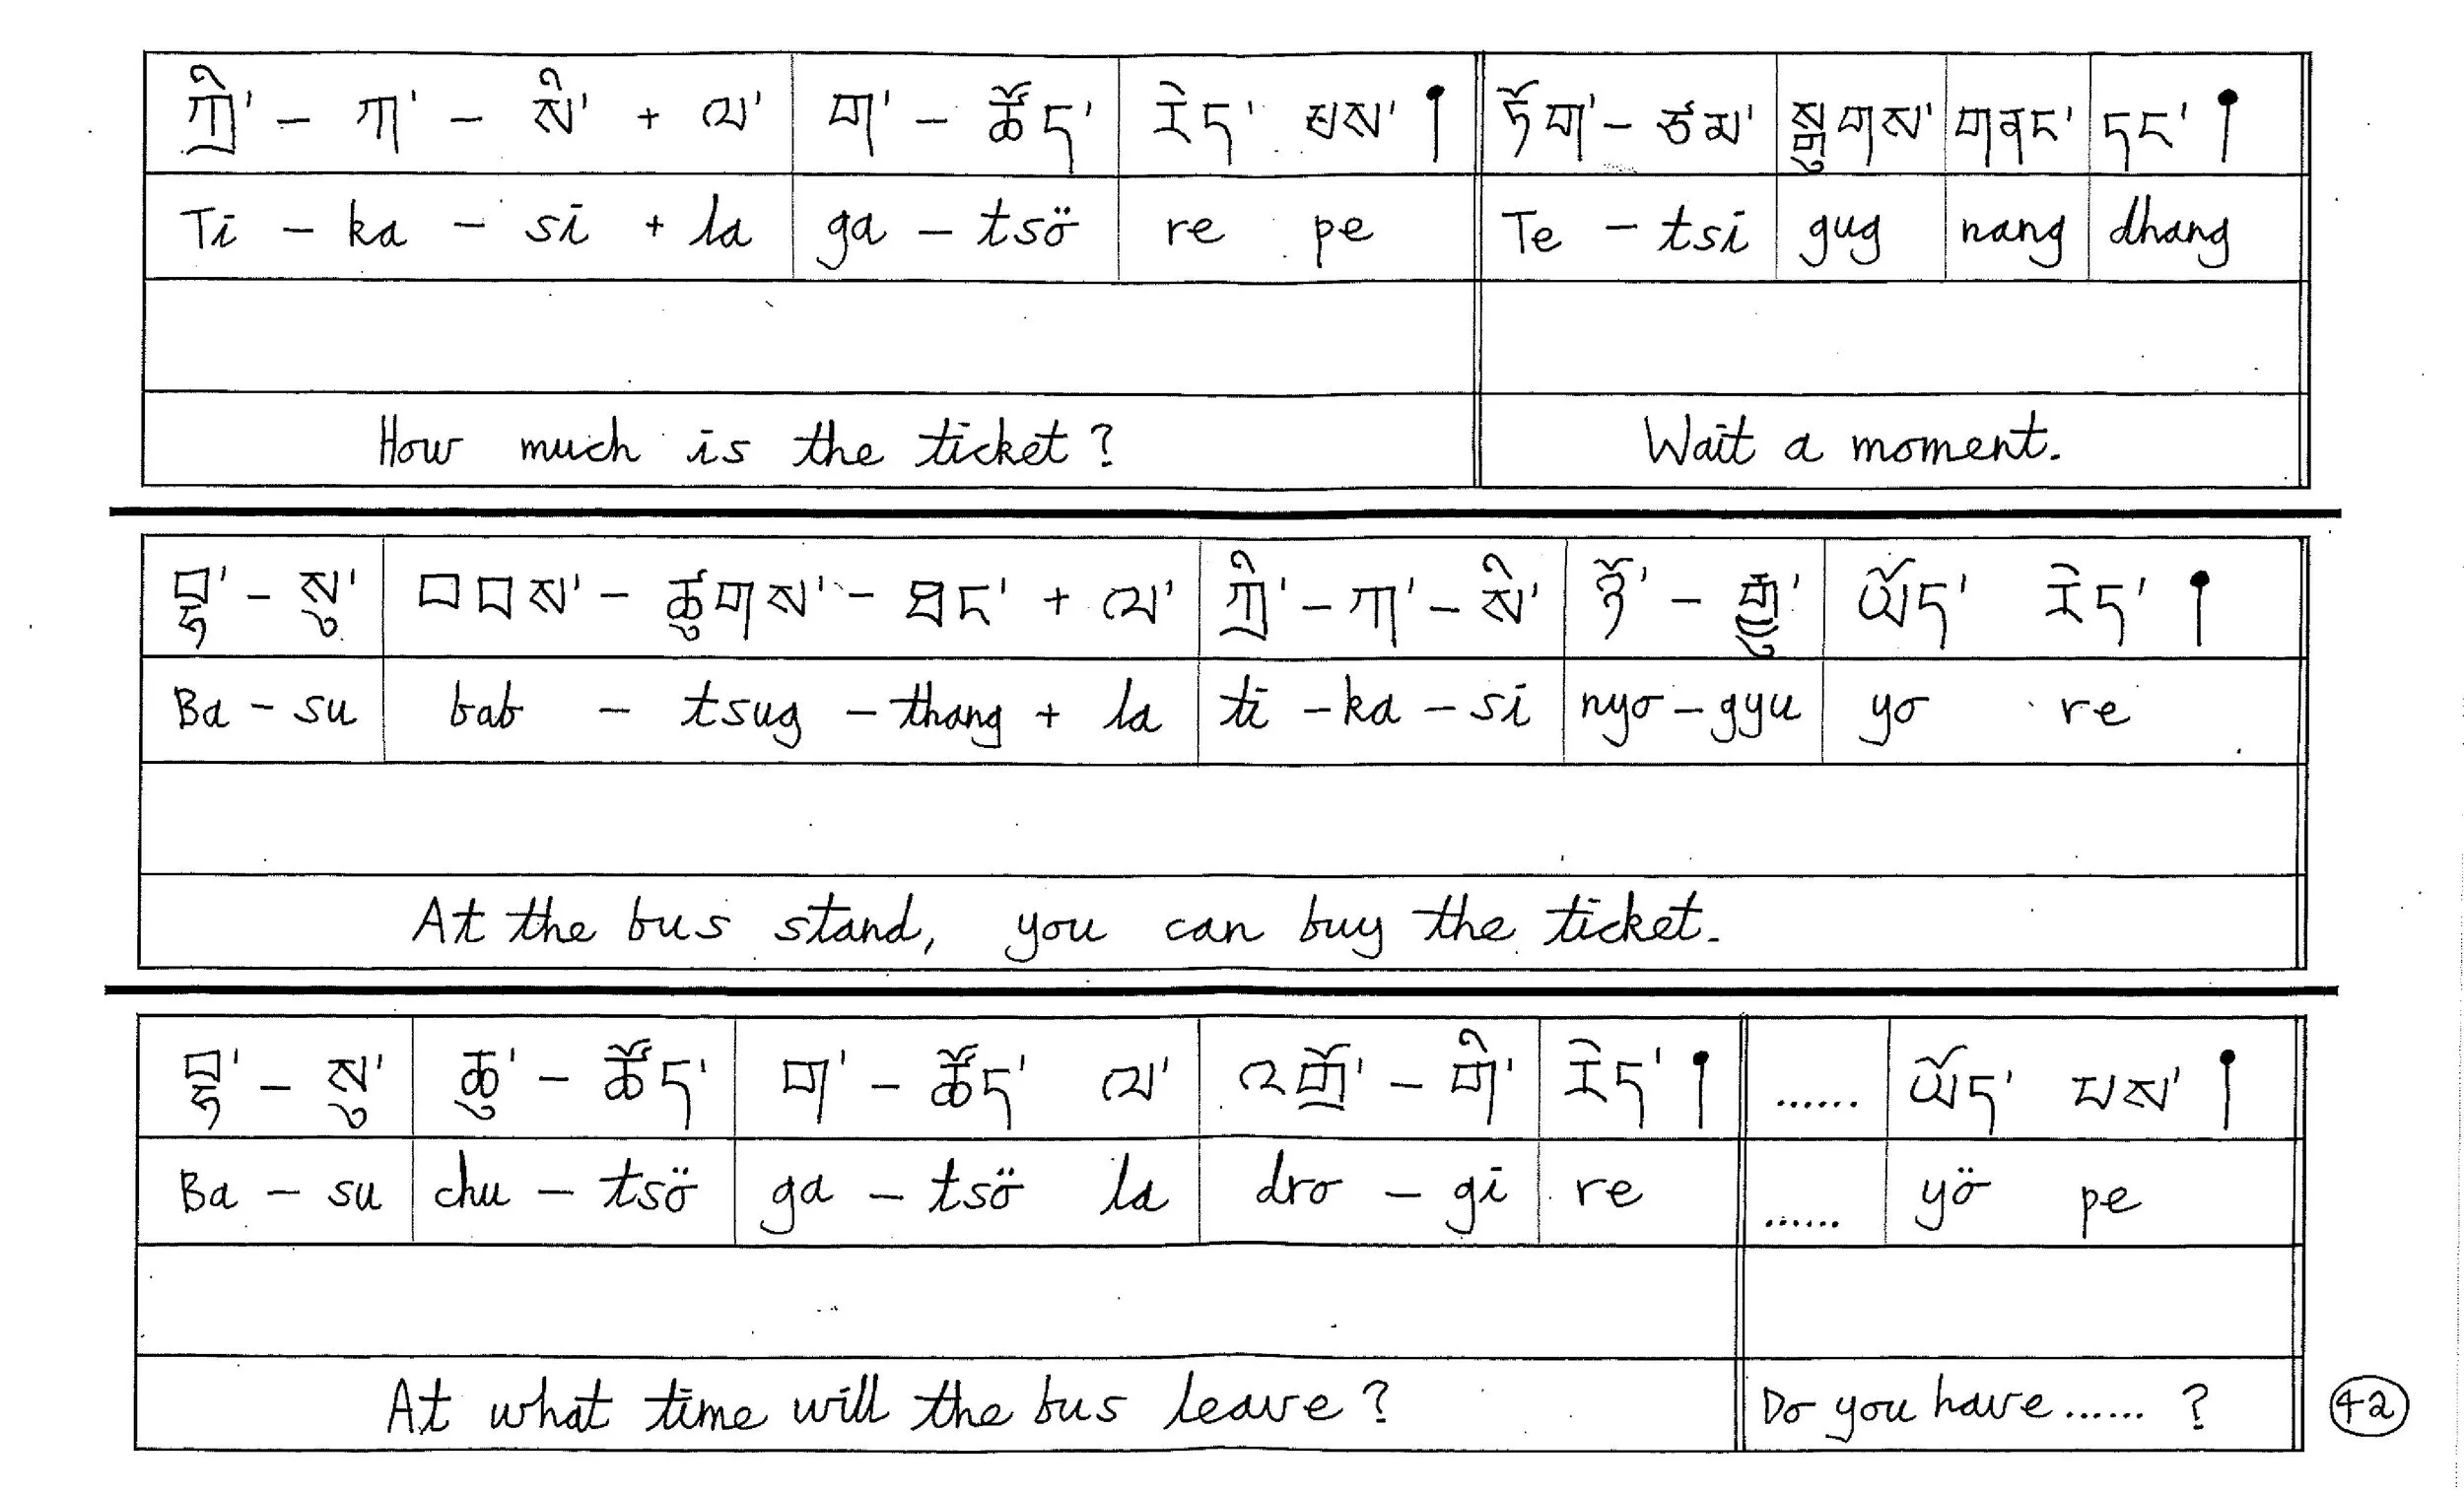 ཀྲི་ - ཀ་ - སི་ + ལ་ ག་ - ཚོད་ རེད་ པས། ཏོག་ - ཙམ་ སྒུགས་ གནང་ དང་།
Ti - ka - si + la ga - tsö re pe Te - tsi gug nang dhang
How much is the ticket? Wait a moment.
སུ་ བབས་ - ཚུགས་ - ཐང་ + ལ་ ཀྲི་ - ཀ་ - སི་ ཉོ་ - རྒྱུ་ ཡོད་ རེད།
Ba - su bab - tsug - thang + la ti - ka - si nyo - gyu yo re
At the bus stand, you can buy the ticket.
སུ་ ཆུ་ - ཚོད་ ག་ - ཚོད་ ལ་ འགྲོ་ - གི་ རེད། ...... ཡོད་ པས།
Ba - su chu - tsö ga - tsö la dro - gi re ...... yö pe
At what time will the bus leave? Do you have ...... ?
42